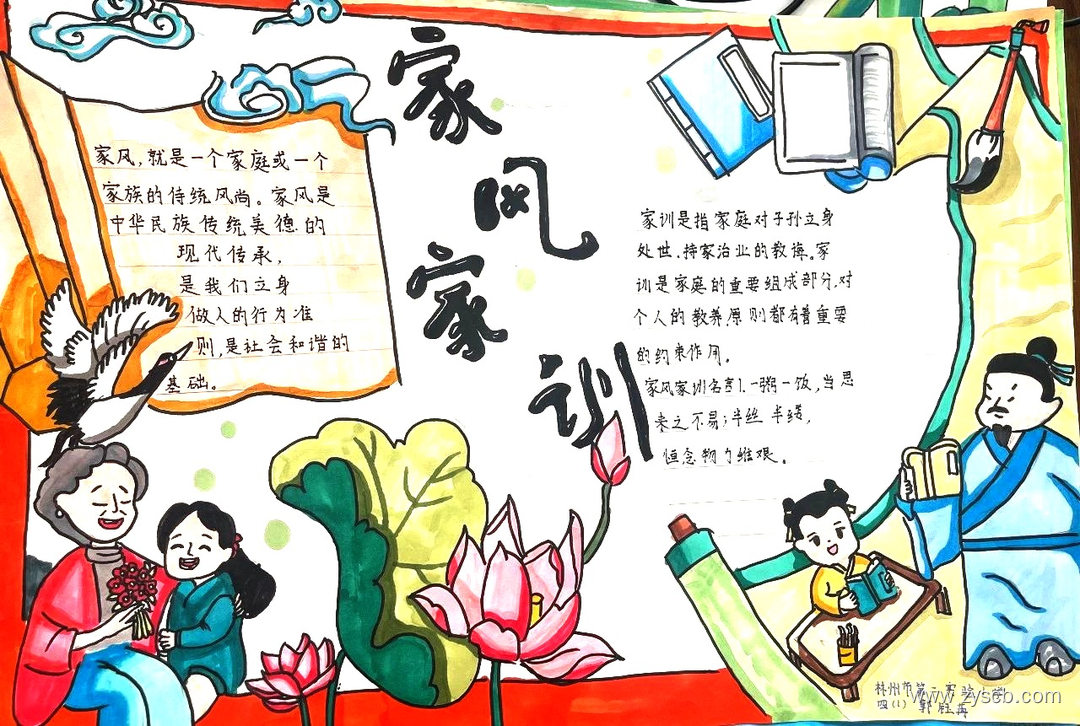 家风家训
家风,就是一个家庭或一个
家族的传统风尚。家风是
中华民族传统美德的
现代传承,
是我们立身
做人的行为准
则,是社会和谐的
基础。
家训是指家庭对子孙立身
处世、持家治业的教诲。家
训是家庭的重要组成部分,对
个人的教养、原则都有着重要
的约束作用。
家风家训名言1.一粥一饭,当思
来之不易;半丝半缕,
恒念物力维艰。
林州市第二实验小学
四(1) 郭
www.zyscb.com